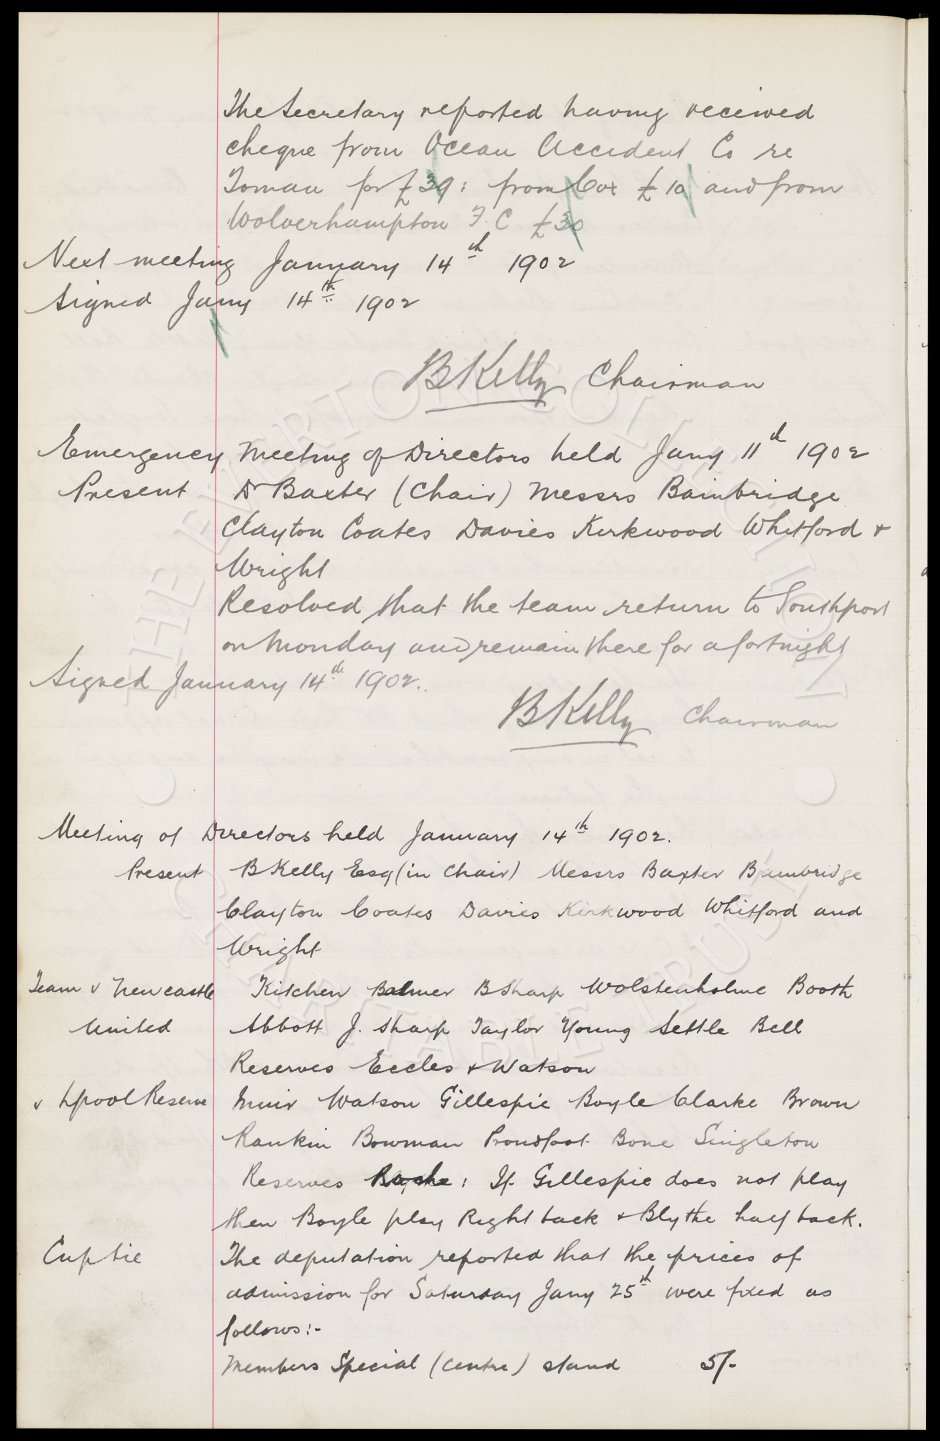 The Secretary reported having received
cheque from Ocean Accident Co re
Toman for £39: from Cox £10 and from
Wolverhampton F.C £30
Next meeting January 14th 1902
Signed Jany 14th 1902
BKelly Chairman
Emergency Meeting of Directors held Jany 11th 1902
Present Dr Baxter (Chair) Messrs Bainbridge
Clayton Coates Davies Kirkwood Whitford &
Wright
Resolved that the team return to Southport
on Monday and remain there for a fortnight
Signed January 14th 1902.
BKelly Chairman
Meeting of Directors held January 14th 1902.
Present B Kelly Esq (in Chair) Messrs Baxter Bainbridge
Clayton Coates Davies Kirkwood Whitford and
Wright
Team v Newcastle Kitchen Balmer B Sharp Wolstenholme Booth
United Abbott J. Sharp Taylor Young Settle Bell
Reserves Eccles & Watson
v Lpool Reserve Muir Watson Gillespie Boyle Clarke Brown
Rankin Bowman Proudfoot Bone Singleton
Reserves Roche: If Gillespie does not play
then Boyle play Right back & Blythe half back.
Cup tie The deputation reported that the prices of
admission for Saturday Jany 25th were fixed as
follows:-
Members Special (Centre) stand 5/-
THE EVERTON COLLECTION
CHARITABLE TRUST